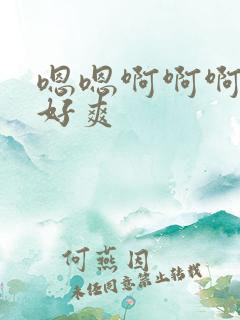 嗯嗯啊啊啊
好爽
何燕因
未经同意禁止转载